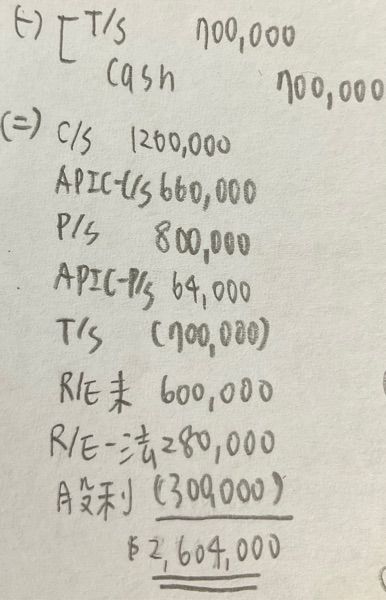 (一) T/S 700,000
Cash 700,000
(二) C/S 1200,000
APIC-C/S 660,000
P/S 800,000
APIC-P/S 64,000
T/S (700,000)
R/E未 600,000
R/E-法 280,000
A股利 (300,000)
$2,604,000